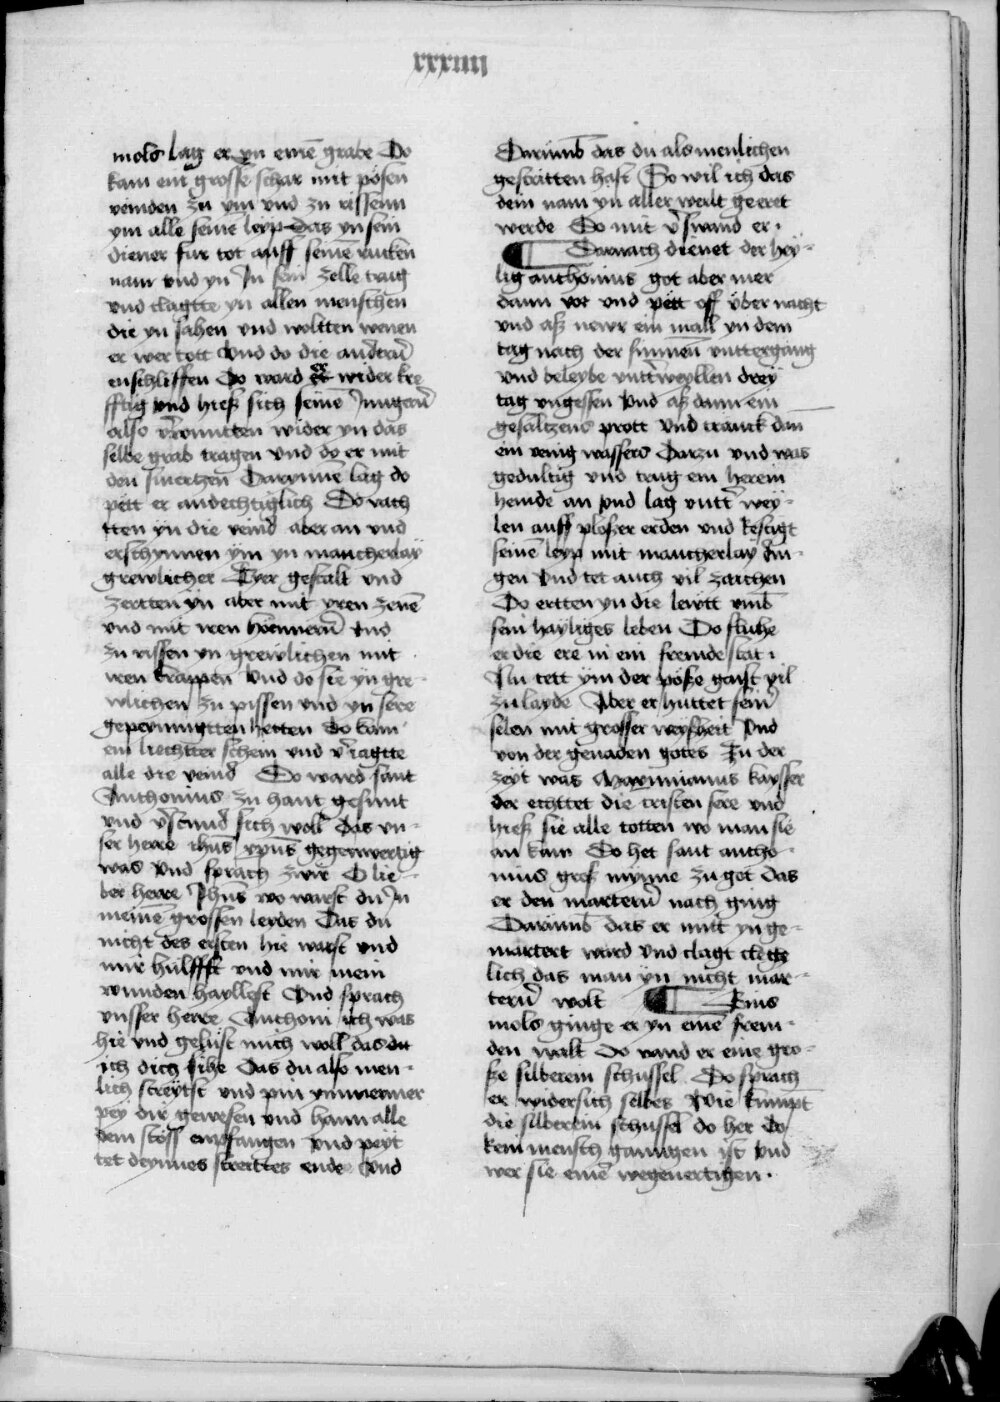 xxxiiij
mols lag er yn eine͂ grabe Do
kam ein grosse schar mit pösen
veinden zu ym vnd zu rissenn
ym alle seine leyp das yn sein
diener fur tot auff seine͂ rucken
nam vnd yn Jn sein zelle trug
vnd clagtte yn allen menschen
die yn sahen vnd woltten wenen
er wer tott Vnd do die
enschliffen Do ward er wider kre
fftig vnd hieß sich seine͂
also wider yn das
selbe grab tragen vnd do er mit
den smertzen lag do
pett er andechtiglich Do vach
tten yn die veind aber an vnd
erschynnen ym yn mancherlaÿ
grewlicher Tyer gestalt vnd
zertten ÿn aber mit yren zene͂
vnd mit iren hörnnern͂ vnd
zu rissen yn grewlichen mit
iren krappen Vnd do sie ÿn gre-
wlichen zu pissen vnd yn sere
gepeynnigtten hetten do kam
ein liechtter schein vnd v͂iagtte
alle die veind Do ward sant
Anthonius zu hant gesunt
vnd v͂stund sich woll das vn-
ser herre ihus͂ xpus͂ gegenwertig
was Vnd sprach zwir O lie-
ber herre Jhus͂ wo warst du Jn
meine͂ grossen leyden Das du
nicht des ersten hie warst vnd
mir hülffst vnd mir mein
wunden hayllest Vnd sprach
vnsser herre Anthoni ich was
hie vnd gelüst mich woll das du
ich dich sihe das du also men-
lich streÿtst vnd pin ymmermer
pey dir gewesen vnd hann alle
dein stöss empfangen Vnd peyt
tet deynnes streittes ende Vnd
Darumb das du als menlichen
gestritten hast So wil ich das
dein nam yn aller welt geeret
werde Do mit v͂swand er ·
¶ Darnach dienet der hey-
lig anthonius got aber mer
dann vor vnd pett off über nacht
vnd aß newr ein mall yn dem
tag nach der sunnen vnttergang
vnd beleybe vntt͂weyllen dreÿ
tag vngessen Vnd aß dann ein
gesaltzens prott Vnd tranck dan͂
ein wenig wassers Darzu vnd was
gedultig vnd trug ein herein
hemde an vnd lag vntt͂ wey-
len auff plosser erden vnd kestigt
seine͂ leyp mit mancherlay din-
gen Vnd tet auch vil zaichen
Do ertten yn die lewtt vmb
sein hayliges leben Do fluhe
er die ere in ein fremde stat ·
Nu tett ym der pöße gaist vil
zu layde Aber er huttet sein͂
selen mit grosser weyßheit Vnd
von der genaden gotes Zu der
zeyt was Maximianus kaysser
der echttet die cristen sere vnd
hieß sie alle totten wo man sie
an kam Do het sant antho-
nius groß mynne zu got das
er den martern͂ nach ging
Darumb das er mitt yn ge-
martert ward Vnd clagt clege
lich das man ÿn nicht mar-
tern͂ wolt ¶ Eins
mols ginge er yn eine͂ frem-
den walt Do vand er eine gro-
ße silberein schussel Do sprach
er widersich selbes Wie kumpt
die silberein schussel do her do
kein mensch ganngen ist Vnd
wer sie eine͂ wegeuertigen ·